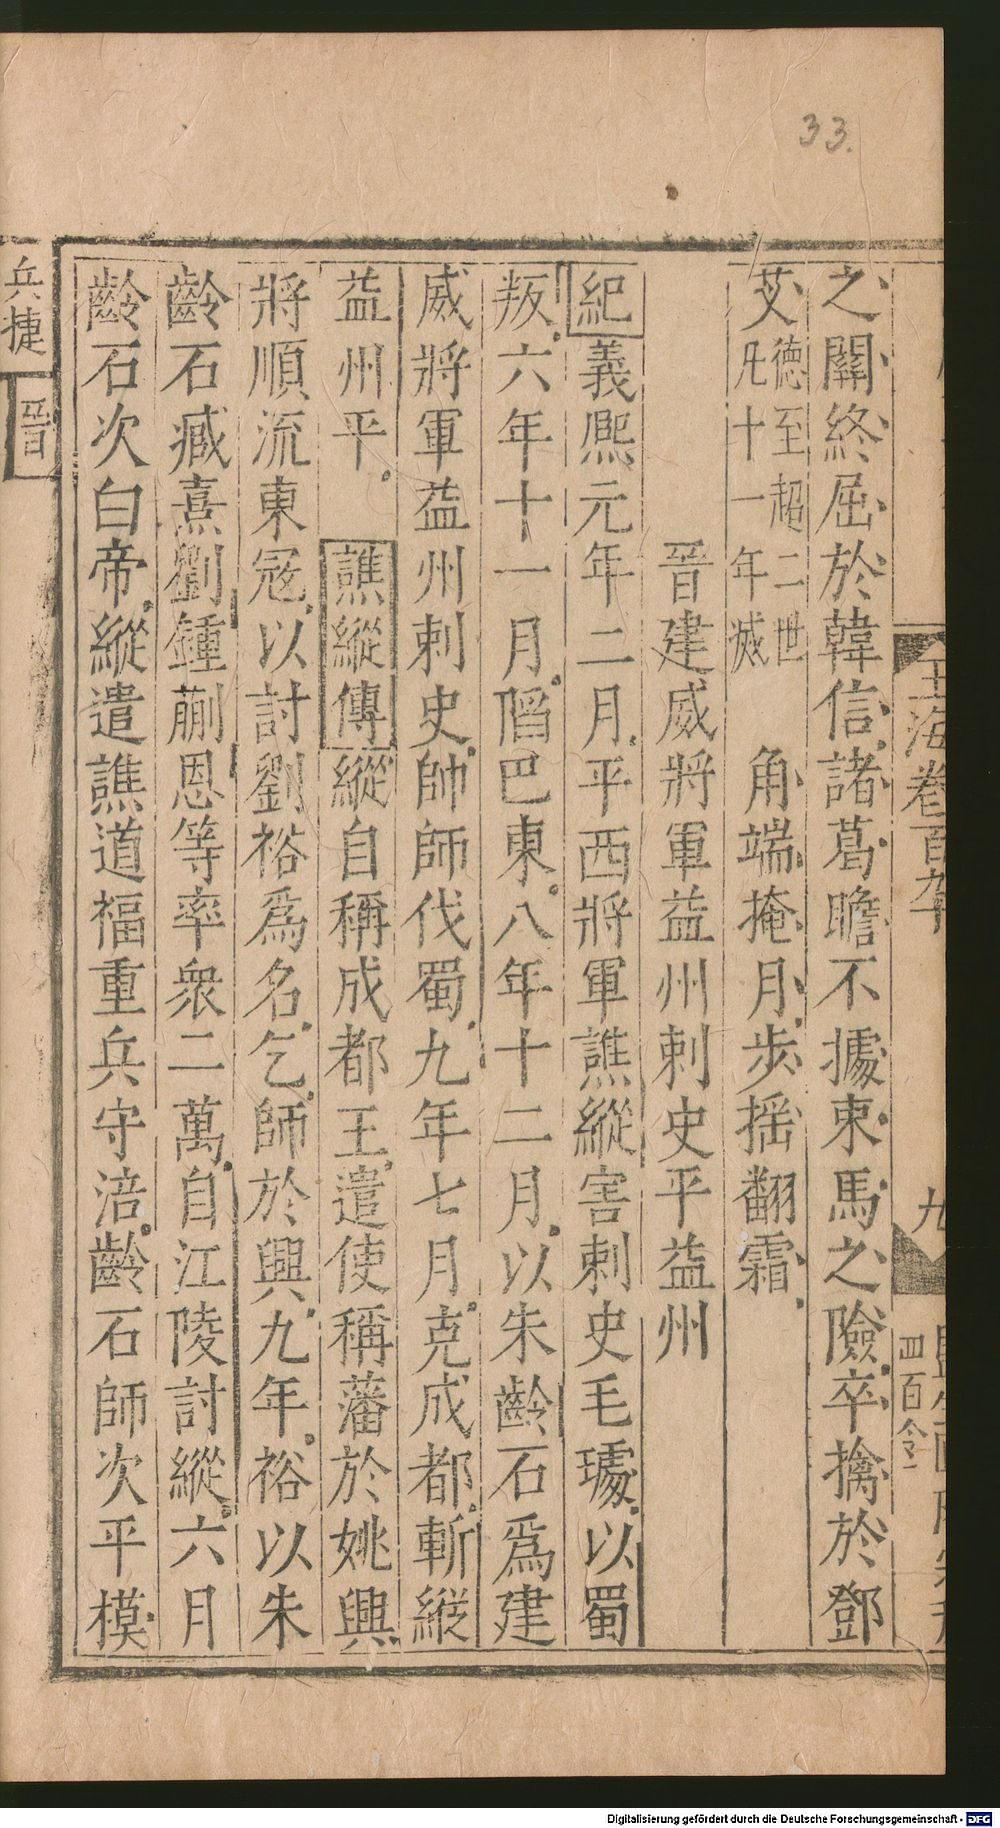 33.
玉海卷百九十
九
四百令一
之關終屈於韓信諸葛瞻不據束馬之險卒擒於鄧
艾德至超二世凡十一年滅 角端掩月步搖翻霜
晉建威將軍益州刺史平益州
紀義熙元年二月平西將軍譙縱害刺史毛璩以蜀
叛六年十一月䧟巴東八年十二月以朱齡石爲建
威將軍益州刺史帥師伐蜀九年七月克成都斬縱
益州平 譙縱傳縱自稱成都王遣使稱藩於姚興
將順流東冦以討劉裕爲名乞師於興九年裕以朱
齡石臧熹劉鍾蒯恩等率衆二萬自江陵討縱六月
齡石次白帝縱遣譙道福重兵守涪齡石師次平模
兵捷 晉
Digitalisierung gefördert durch die Deutsche Forschungsgemeinschaft - DFG